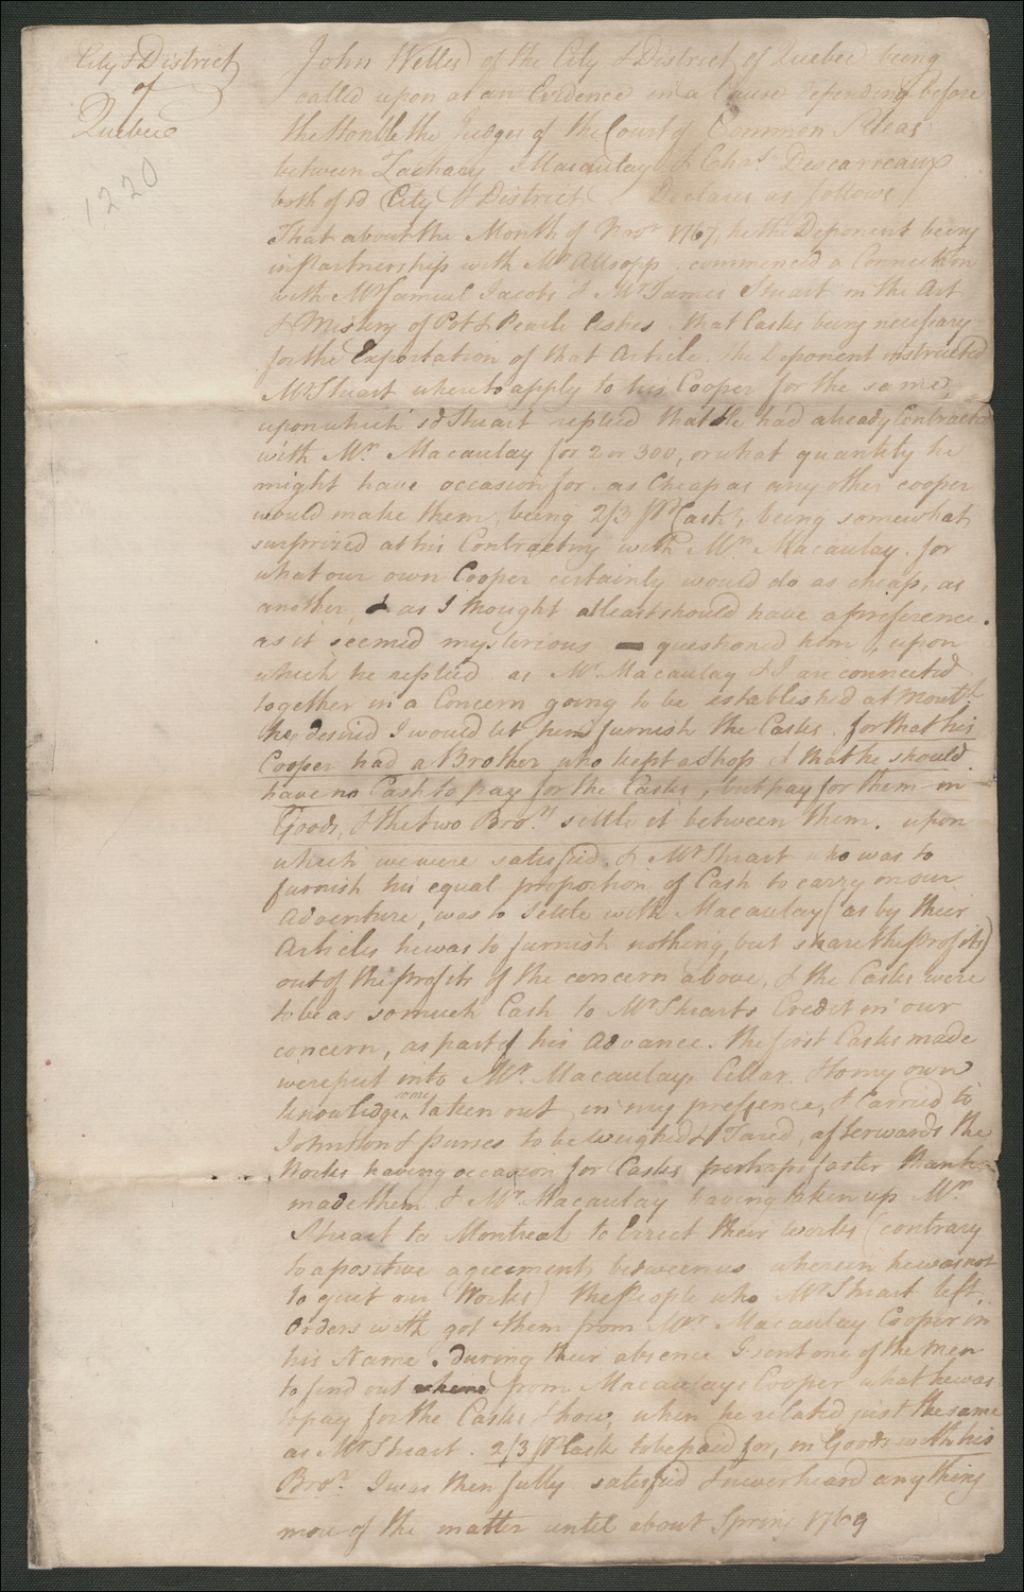 City & District
of
Quebec
1220
John Welles of the City & District of Quebec being
called upon as an Evidence in a Cause depending before
the Honble the Judges of the Court of Common Pleas
between Zachary Macaulay & Chas. Decarreaux
both of sd City & District Declares as follows
That about the Month of Novr 1767, he the Deponent being
in Partnership with Mr Allsopp commenced a Connection
with Mr Samuel Jacobs & Mr James Stuart in the Art
& Mistery of Pot & Pearle Ashes that Casks being necessary
for the Exportation of that Article, the Deponent instructed
Mr Stuart where to apply to his Cooper for the same,
upon which sd Stuart replied that He had already Contracted
with Mr. Macaulay for 2 or 300, or what quantity he
might have occasion for as Cheap as any other cooper
would make them, being 2/3 pr Cask, being somewhat
surprized at his Contracting with Mr. Macaulay for
what our own Cooper certainly would do as cheap, as
another, & as I thought at least should have a preference.
as it seemed mysterious questioned him, upon
which he replied as Mr. Macaulay & I are connected
together in a Concern going to be established at Montl.
he desired I would let him furnish the Casks for that his
Cooper had a Brother who kept a Shop & that he should
have no Cash to pay for the Casks, but pay for them in
Goods, & the two Bror.s settle it between them. upon
which we were satisfied & Mr Stuart who was to
furnish his equal proportion of Cash to carry on our
Adventure, was to settle with Macaulay (as by their
Articles he was to furnish nothing but share the profits)
out of the profits of the concern above, & the Casks were
to be as so much Cash to Mr Stuarts Credit in our
concern, as part of his Advance. the first Casks made
were put into Mr. Macaulays Cellar & to my own
knowledge some taken out in my presence, & Carried to
Johnston & Purses to be Weighed & Tared, afterwards the
Works having occasion for Casks perhaps faster than he
made them & Mr. Macaulay having taken up Mr.
Stuart to Montreal to Errect their works (contrary
to a positive agreement between us wherein he was not
to quit our Works) the People who Mr Stuart left
Orders with got them from Mr. Macaulay Cooper in
his Name. during their absence I sent one of the men
to find out from Macaulays Cooper what he was
to pay for the Casks & how, when he related just the same
as Mr Stuart. 2/3 pr Cask to be paid for, in Goods with his
Bror. I was then fully satisfied & never heard any thing
more of the matter until about Spring 1769